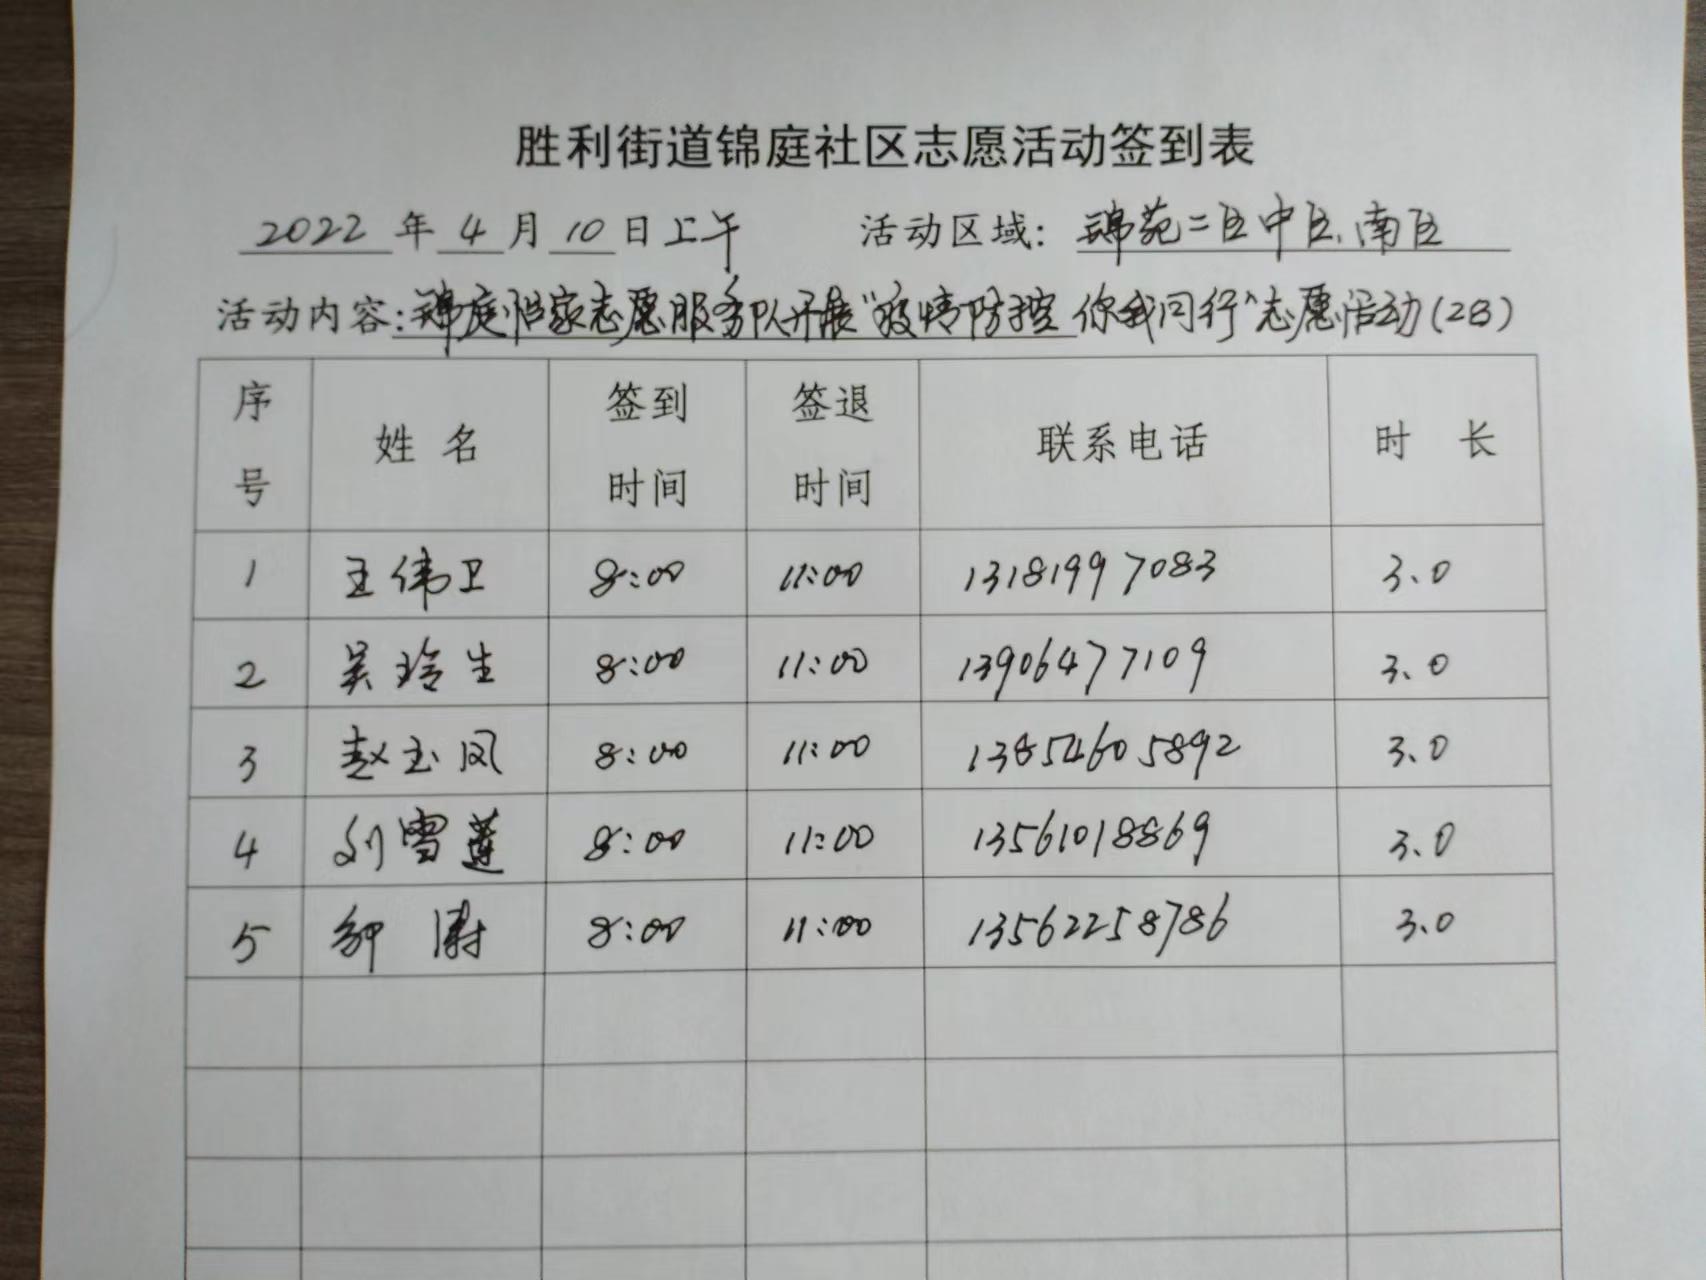 胜利街道锦庭社区志愿活动签到表
2022年4月10日上午 活动区域：锦苑二区中区、南区
活动内容：锦庭管家志愿服务队开展“疫情防控 你我同行”志愿活动(2B)
序号 姓名 签到时间 签退时间 联系电话 时长
1 王伟卫 8:00 11:00 13181997083 3.0
2 吴玲生 8:00 11:00 13906477109 3.0
3 赵玉凤 8:00 11:00 13854605892 3.0
4 刘雪莲 8:00 11:00 13561018869 3.0
5 涛 8:00 11:00 13562258786 3.0